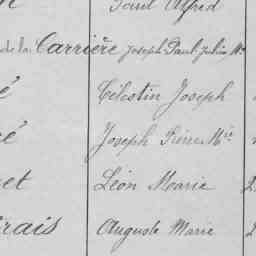 Paul Alfred
de la Carrière Joseph Paul Julien M.
é Célestin Joseph
é Joseph Pierre M.ie
et Léon Marie 2
rais Auguste Marie 2